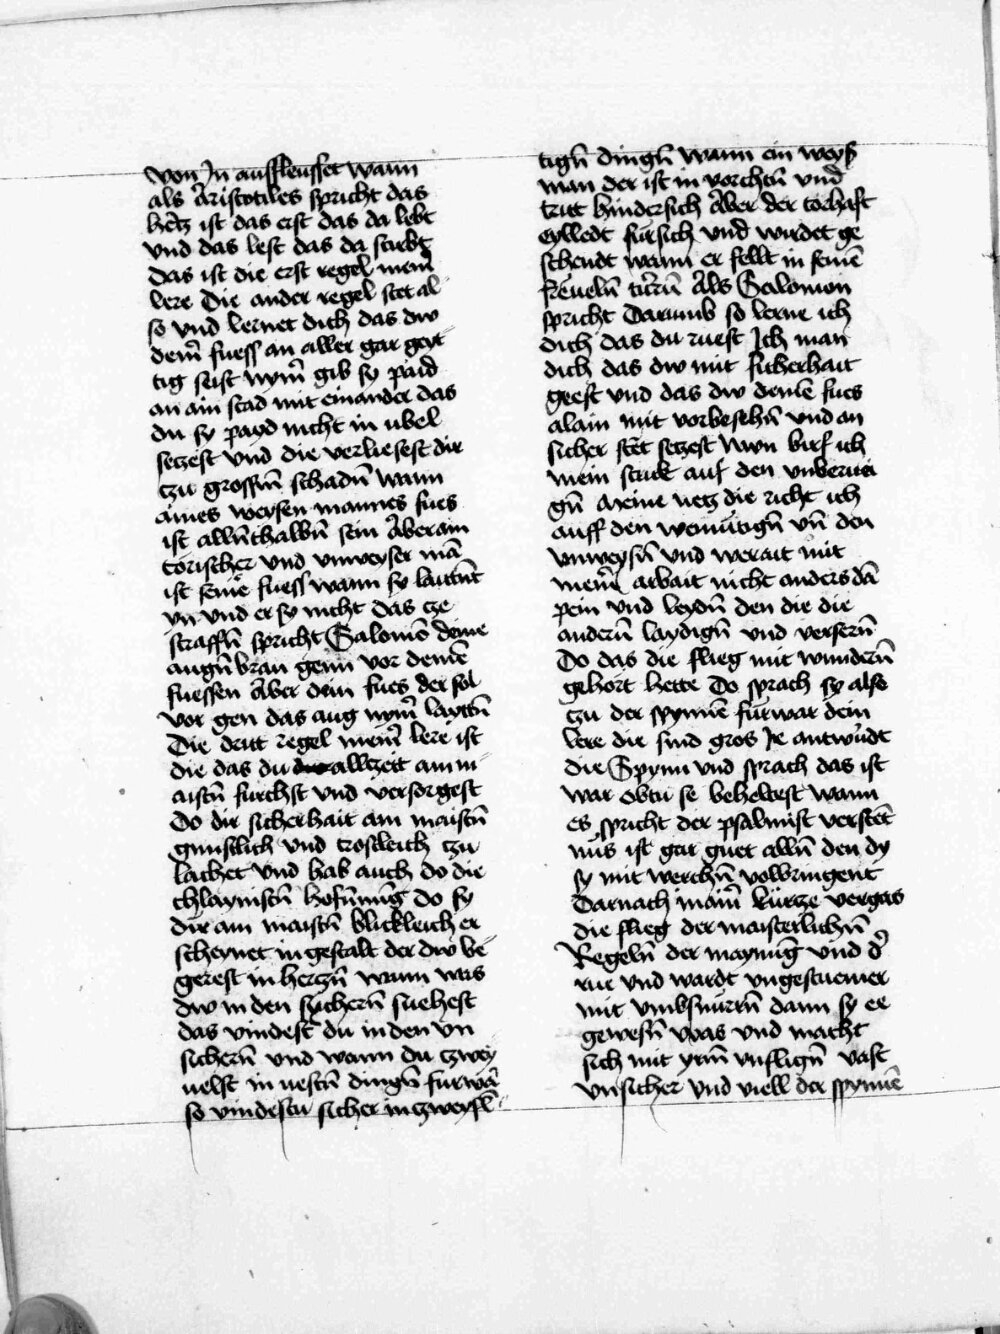 von In ausfleusset wann
als Aristotiles spricht das
hertz ist das erst das da lebt
vnd das lest das da stirbt
das ist die erst regel meiñ
lere Die ander regel stet al
so vnd lernet dich das dw
deiñ fuess an aller gar geyt
tig seist nyñ gib sy paid
an ain stad mit einander das
du sy payd nicht in ubel
setzest vnd die verliesest dir
tzu grossñ schadñ wann
aines weysen mannes fues
ist allñthalbñ sein Aber ain
törischer vnd vnweyser mā
ist seinē fuess wann sy lauttñt
vn vnd er sy nicht das tze
straffñ spricht Salomō deine
augñbran genn vor deinē
fuessen Aber dein fues der sol
vor gen das aug nyñ layttñ
Die dritt regel meiñ lere ist
die das du alltzeit am m
aistñ furchst vnd versorgest
Do dir sicherhait am maistñ
gunstlich vnd trostleich tzu
lachet vnd hab auch do die
chlaynistñ hofnūg do sy
dir am maistñ blickleich er
scheynet in gestalt der dw be
gerest in hertzñ wann was
dw in den sichern̄ suehest
das vindest du in den vn
sichern̄ vnd wann du tzwey
uelst in uestñ dingñ furwā
so vindestu sicher in tzweyfl
tigñ dingñ wann ein weys
man der ist in vorchtñ vnd
tritt hindersich Aber der torhaft
eylledt fursich vnd wirdet ge
schendt wann er fellt in seinē
freuelñ türñ Als Salomon
spricht Darumb so lerne ich
dich das du ruest Ich man
dich das dw mit sicherhait
geest vnd das dw deinē fues
alain mit vorbesehñ vnd an
sicher stet setzest Nun birf ich
mein strick auf den vnberai
gñ Meine netz die richt ich
auff den weinüttigñ vñ den
vnweysñ vnd werait mit
meiñ arbait nicht anders dā
pein vnd leydñ den die die
andern̄ laydigñ vnd versern̄
Do das die flieg mit wundern̄
gehort hette Do sprach sy also
tzu der spynnē fürwar dein
lere die sind gros Ir antwürt
die Spynn vnd sprach das ist
war obtu se beheltest wann
es spricht der psalmist verstēt
nūs ist gar guet allñ den dy
sy mit werchñ volbringent
Darnach in aiñ kürtze vergas
die flieg der maisterlichñ
Regelñ der maynūg vnd d'
rue vnd wardt vngestuemer
mit vmbsnürrñ dann sy ee
gewesñ was vnd macht
sich mit yrñ vnfligñ vast
vnsicher vnd viell der spynnē